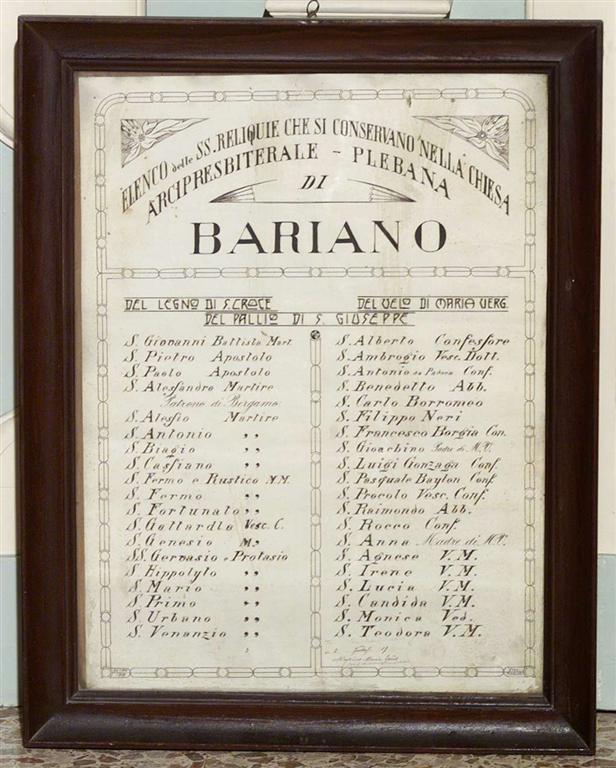 ELENCO delle SS. RELIQUIE CHE SI CONSERVANO NELLA CHIESA
ARCIPRESBITERALE - PLEBANA
DI
BARIANO
DEL LEGNO DI S. CROCE
DEL VELO DI MARIA VERG.
DEL PALLIO DI S. GIUSEPPE
S. Giovanni Battista Mart.
S. Pietro Apostolo
S. Paolo Apostolo
S. Alessandro Martire
Patrono di Bergamo
S. Alessio Martire
S. Antonio ,,
S. Biagio ,,
S. Cassiano ,,
S. Fermo e Rustico M.M.
S. Fermo ,,
S. Fortunato ,,
S. Gottardo Vesc. C.
S. Genesio M.
SS. Gervasio e Protasio
S. Hippolyto ,,
S. Mario ,,
S. Primo ,,
S. Urbano ,,
S. Venanzio ,,
S. Alberto Confessore
S. Ambrogio Vesc. Dott.
S. Antonio da Padova Conf.
S. Benedetto Abb.
S. Carlo Borromeo
S. Filippo Neri
S. Francesco Borgia Con.
S. Gioachino Padre di M.V.
S. Luigi Gonzaga Conf.
S. Pasquale Baylon Conf.
S. Procolo Vesc. Conf.
S. Raimondo Abb.
S. Rocco Conf.
S. Anna Madre di M.V.
S. Agnese V.M.
S. Irene V.M.
S. Lucia V.M.
S. Candida V.M.
S. Monica Ved.
S. Teodora V.M.